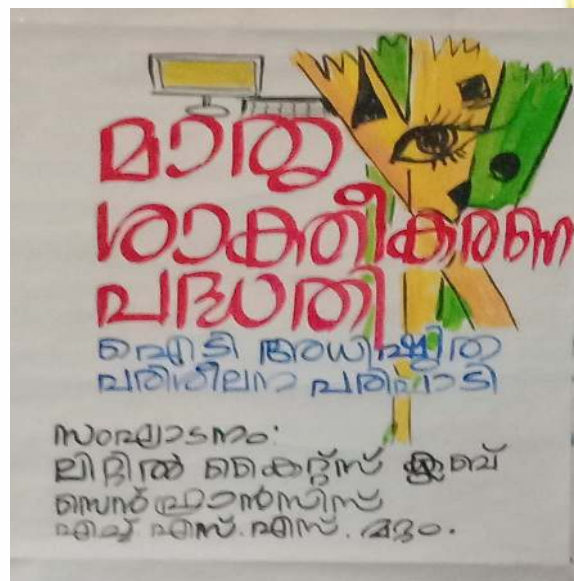 മാതൃ
ശാക്തീകരണ
പദ്ധതി
ഐടി അധിഷ്ഠിത
പരിശീലന പരിപാടി
സംഘാടനം:
ലിറ്റിൽ കൈറ്റ്സ് ക്ലബ്
സെൻ്റ് ഫ്രാൻസിസ്
എച്ച് എസ്.എസ്. മറ്റം.